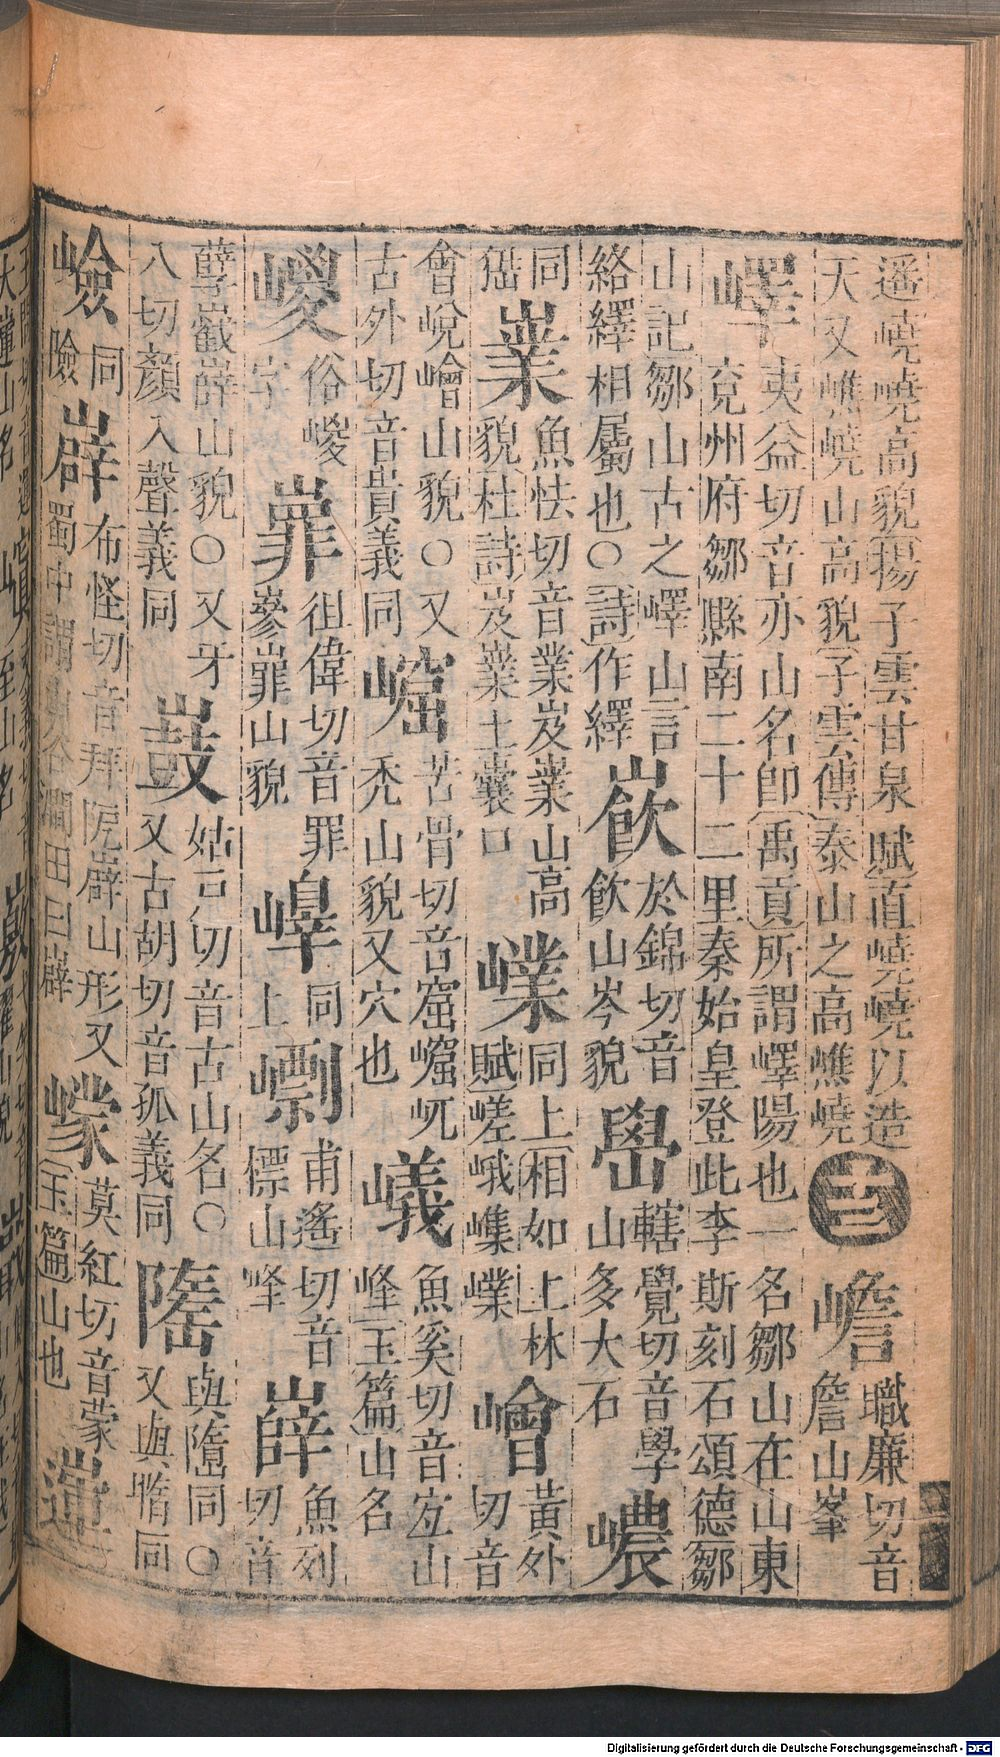 遥嶢嶢高貌揚子雲甘泉賦直嶢嶢以造
天又嶕嶢山高貌子雲傳泰山之高嶕嶢
十三
嶦
職廉切音
詹山峯
嶧
夷益切音亦山名卽禹貢所謂嶧陽也一名鄒山在山東
兗州府鄒縣南二十二里秦始皇登此李斯刻石頌德鄒
山記鄒山古之嶧山言
絡繹相屬也○詩作繹
㠕
於錦切音
飲山岑貌
嶨
轄覺切音學
山多大石
嶩
同
猫
嶪
魚怯切音業岌嶪山高
貌杜詩岌嶪土囊口
㠍
同上相如上林
賦嵯峨㠍嶪
嶒
黃外切音
會㟋嶒山貌○又
古外切音貴義同
㟮
苦骨切音窟㟮屼
禿山貌又穴也
嶬
魚奚切音宐山
峰玉篇山名
㟎
俗㟎
字
嶵
徂偉切音罪
嵾嶵山貌
嶂
同
上
㠒
甫遙切音
標山峰
嶭
魚列切音
孽嶻嶭山貌○又牙
八切顏入聲義同
㠉
姑戸切音古山名○
又古胡切音孤義同
隓
與隳同○
又與惰同
嶮
同
險
㠔
布怪切音拜𡵆㠔山形又
蜀中謂山谷澗田曰㠔
㠓
莫紅切音蒙
玉篇山也
Digitalisierung gefördert durch die Deutsche Forschungsgemeinschaft - DFG